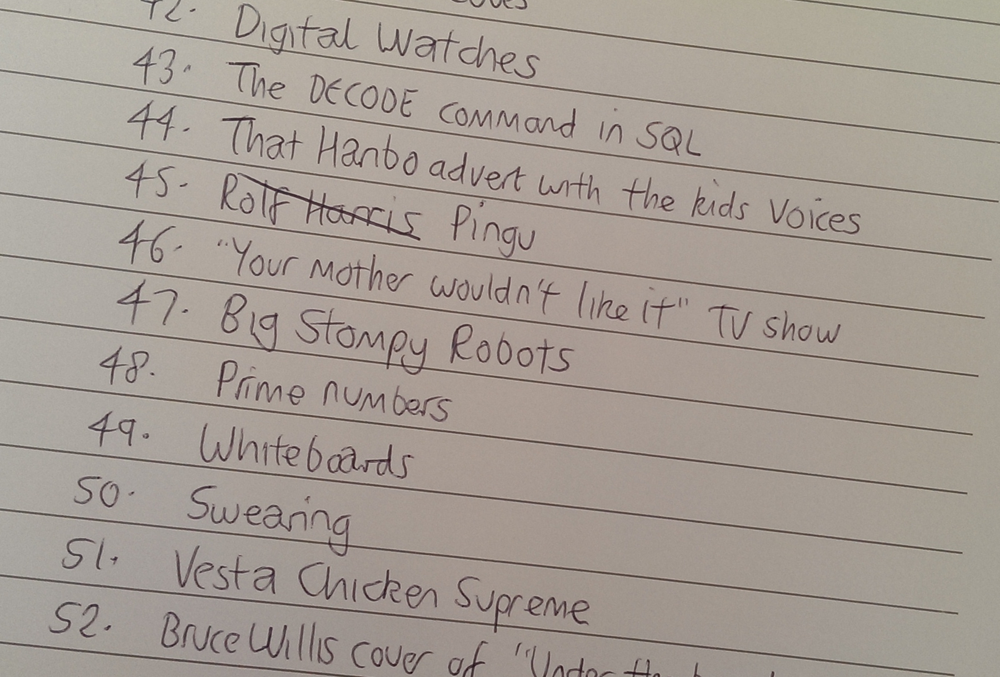 42. Digital Watches
43. The DECODE command in SQL
44. That Haribo advert with the kids voices
45. Rolf Harris Pingu
46. "Your mother wouldn't like it" TV show
47. Big Stompy Robots
48. Prime numbers
49. Whiteboards
50. Swearing
51. Vesta Chicken Supreme
52. Bruce Willis cover of "Under the